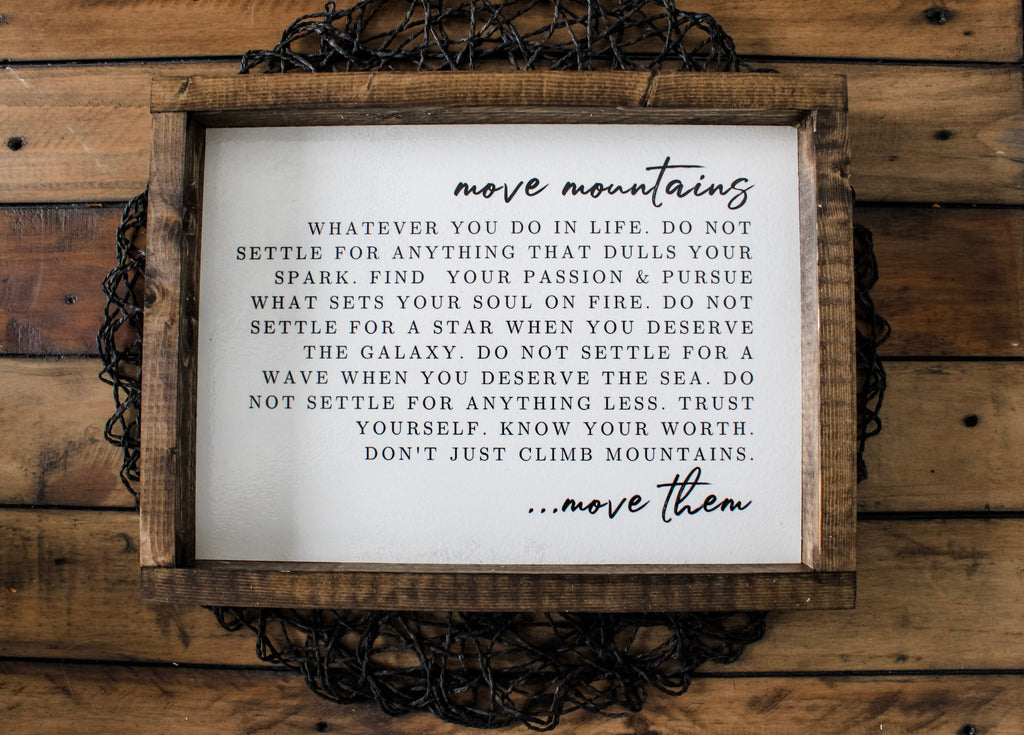 move mountains
WHATEVER YOU DO IN LIFE. DO NOT
SETTLE FOR ANYTHING THAT DULLS YOUR
SPARK. FIND YOUR PASSION & PURSUE
WHAT SETS YOUR SOUL ON FIRE. DO NOT
SETTLE FOR A STAR WHEN YOU DESERVE
THE GALAXY. DO NOT SETTLE FOR A
WAVE WHEN YOU DESERVE THE SEA. DO
NOT SETTLE FOR ANYTHING LESS. TRUST
YOURSELF. KNOW YOUR WORTH.
DON'T JUST CLIMB MOUNTAINS.
...move them